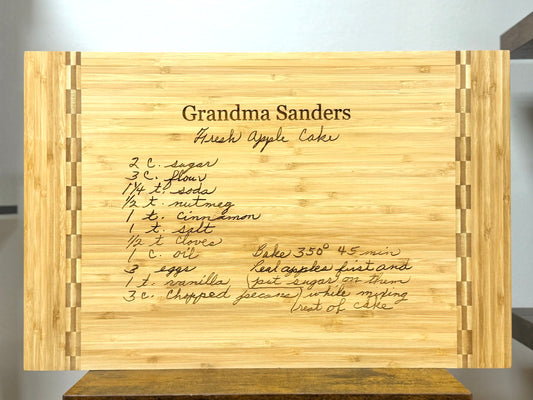 Grandma Sanders
Fresh Apple Cake
2 C. sugar
3 C. flour
1 1/4 t. soda
1/2 t. nutmeg
1 t. cinnamon
1 t. salt
1/2 t cloves
1 C. oil
3 eggs
1 t. vanilla
3 C. Chopped pecans
Bake 350° 45 min
Peel apples first and
(put sugar on them
while mixing
rest of cake)